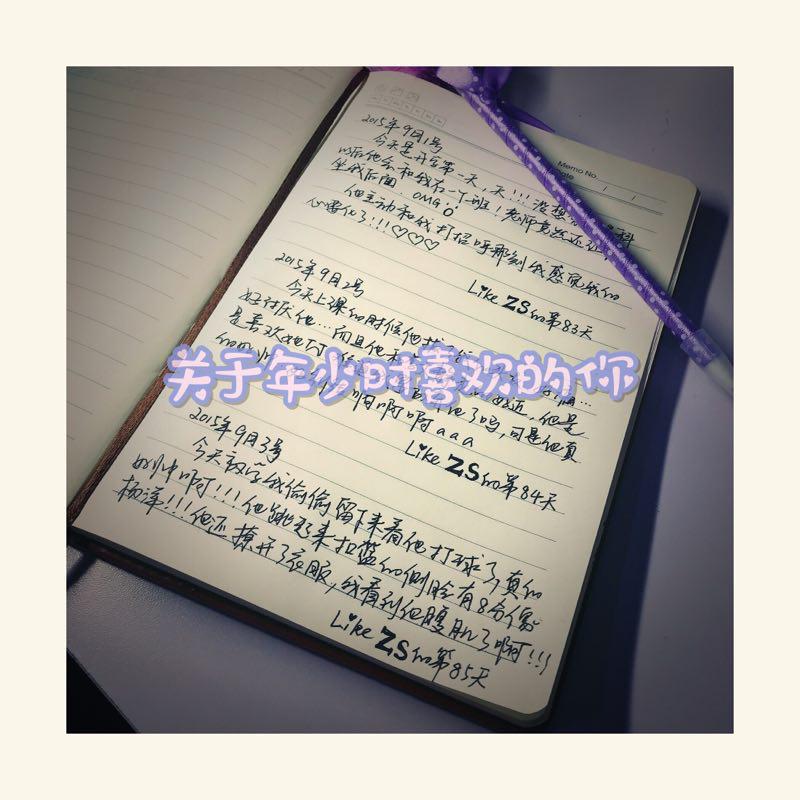 Memo No.
2015年9月1号
今天是开学第一天,天!!!没想
以后他会和我在一个班!老师竟然还让
坐我后面. OMG!
他主动和我打招呼那刻我感觉我的
心要化了!!!♡♡♡
Like ZS的第83天
2015年9月2号
今天上课的时候他
好讨厌他…而且他和
关于年少时喜欢的你
啊啊啊aaa
Like ZS的第84天
2015年9月3号
今天放学我偷偷留下来看他打球了,真的
好帅啊!!!他跳起来扣篮的侧脸有8分像
杨洋!!!他还撩开了衣服,我看到他腹肌了啊!!!
Like ZS的第85天